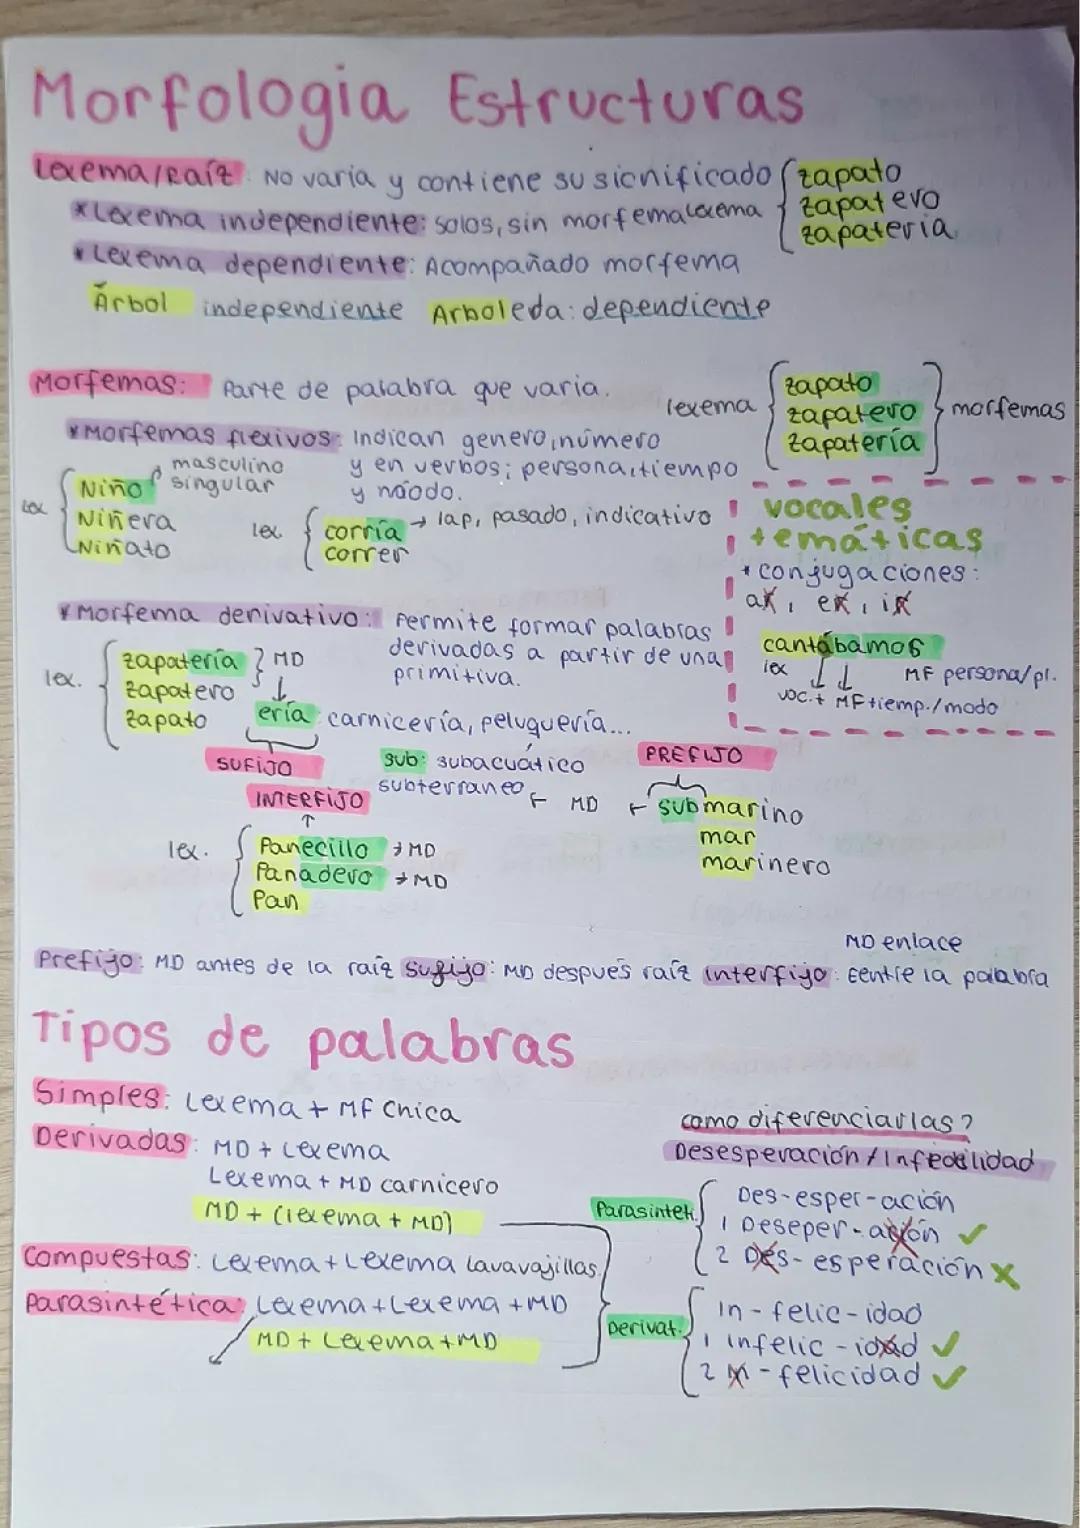 Morfologia Estructuras
Lexema/Raíz: No varia y contiene su sicnificado
zapato
zapatero
zapateria
*Lexema independiente: solos, sin morfema
Lexema
*Lexema dependiente: Acompañado morfema
Árbol independiente Arboleda: dependiente
Morfemas: Parte de palabra que varia.
lexema
zapato
zapatero
zapatería
morfemas
*Morfemas flexivos: Indican genero, número
y en verbos; persona, tiempo
y modo.
lex
Niño
masculino
singular
Niñera
Niñato
lex.
corría → 1ap, pasado, indicativo
correr
vocales
temáticas
* conjugaciones:
ar, er, ir
cantábamos
lex
voc.t
MF tiemp./modo
MF persona/pl.
*Morfema derivativo: Permite formar palabras
derivadas a partir de una
primitiva.
lex.
zapatería
zapatero
zapato
MD
ería: carnicería, peluquería...
SUFIJO
INTERFIJO
sub: subacuático
subterraneo
MD
PREFIJO
submarino
mar
marinero
lex.
Panecillo → MD
Panadero → MD
Pan
MD enlace
Prefijo: MD antes de la raíz Sufijo: MD después raíz interfijo: Eentre la palabra
Tipos de palabras
Simples: Lexema + MF Chica
Derivadas: MD + Lexema
Lexema + MD carnicero
MD + (lexema + MD)
Compuestas: Lexema + Lexema Lavavajillas
Parasintética: Lexema + Lexema + MD
MD + Lexema + MD
como diferenciarlas?
Desesperación / Infedilidad
Parasintet.
Des-esper-ación
1 Deseper-ación ✓
2 Des-esperación X
Derivat.
In-felic-idad
1 infelic-idad ✓
2 in-felicidad ✓